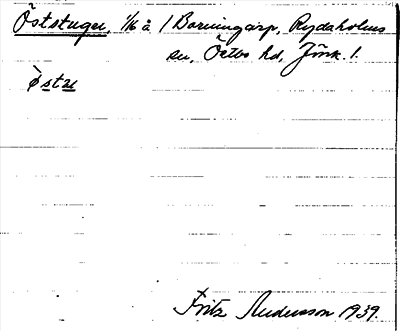 Öststugen, 1/16 å 1 Borningarp, Rydaholms
sn, Östbo hd, Jönk. l.
östʉ
Fritz Andersson 1939.